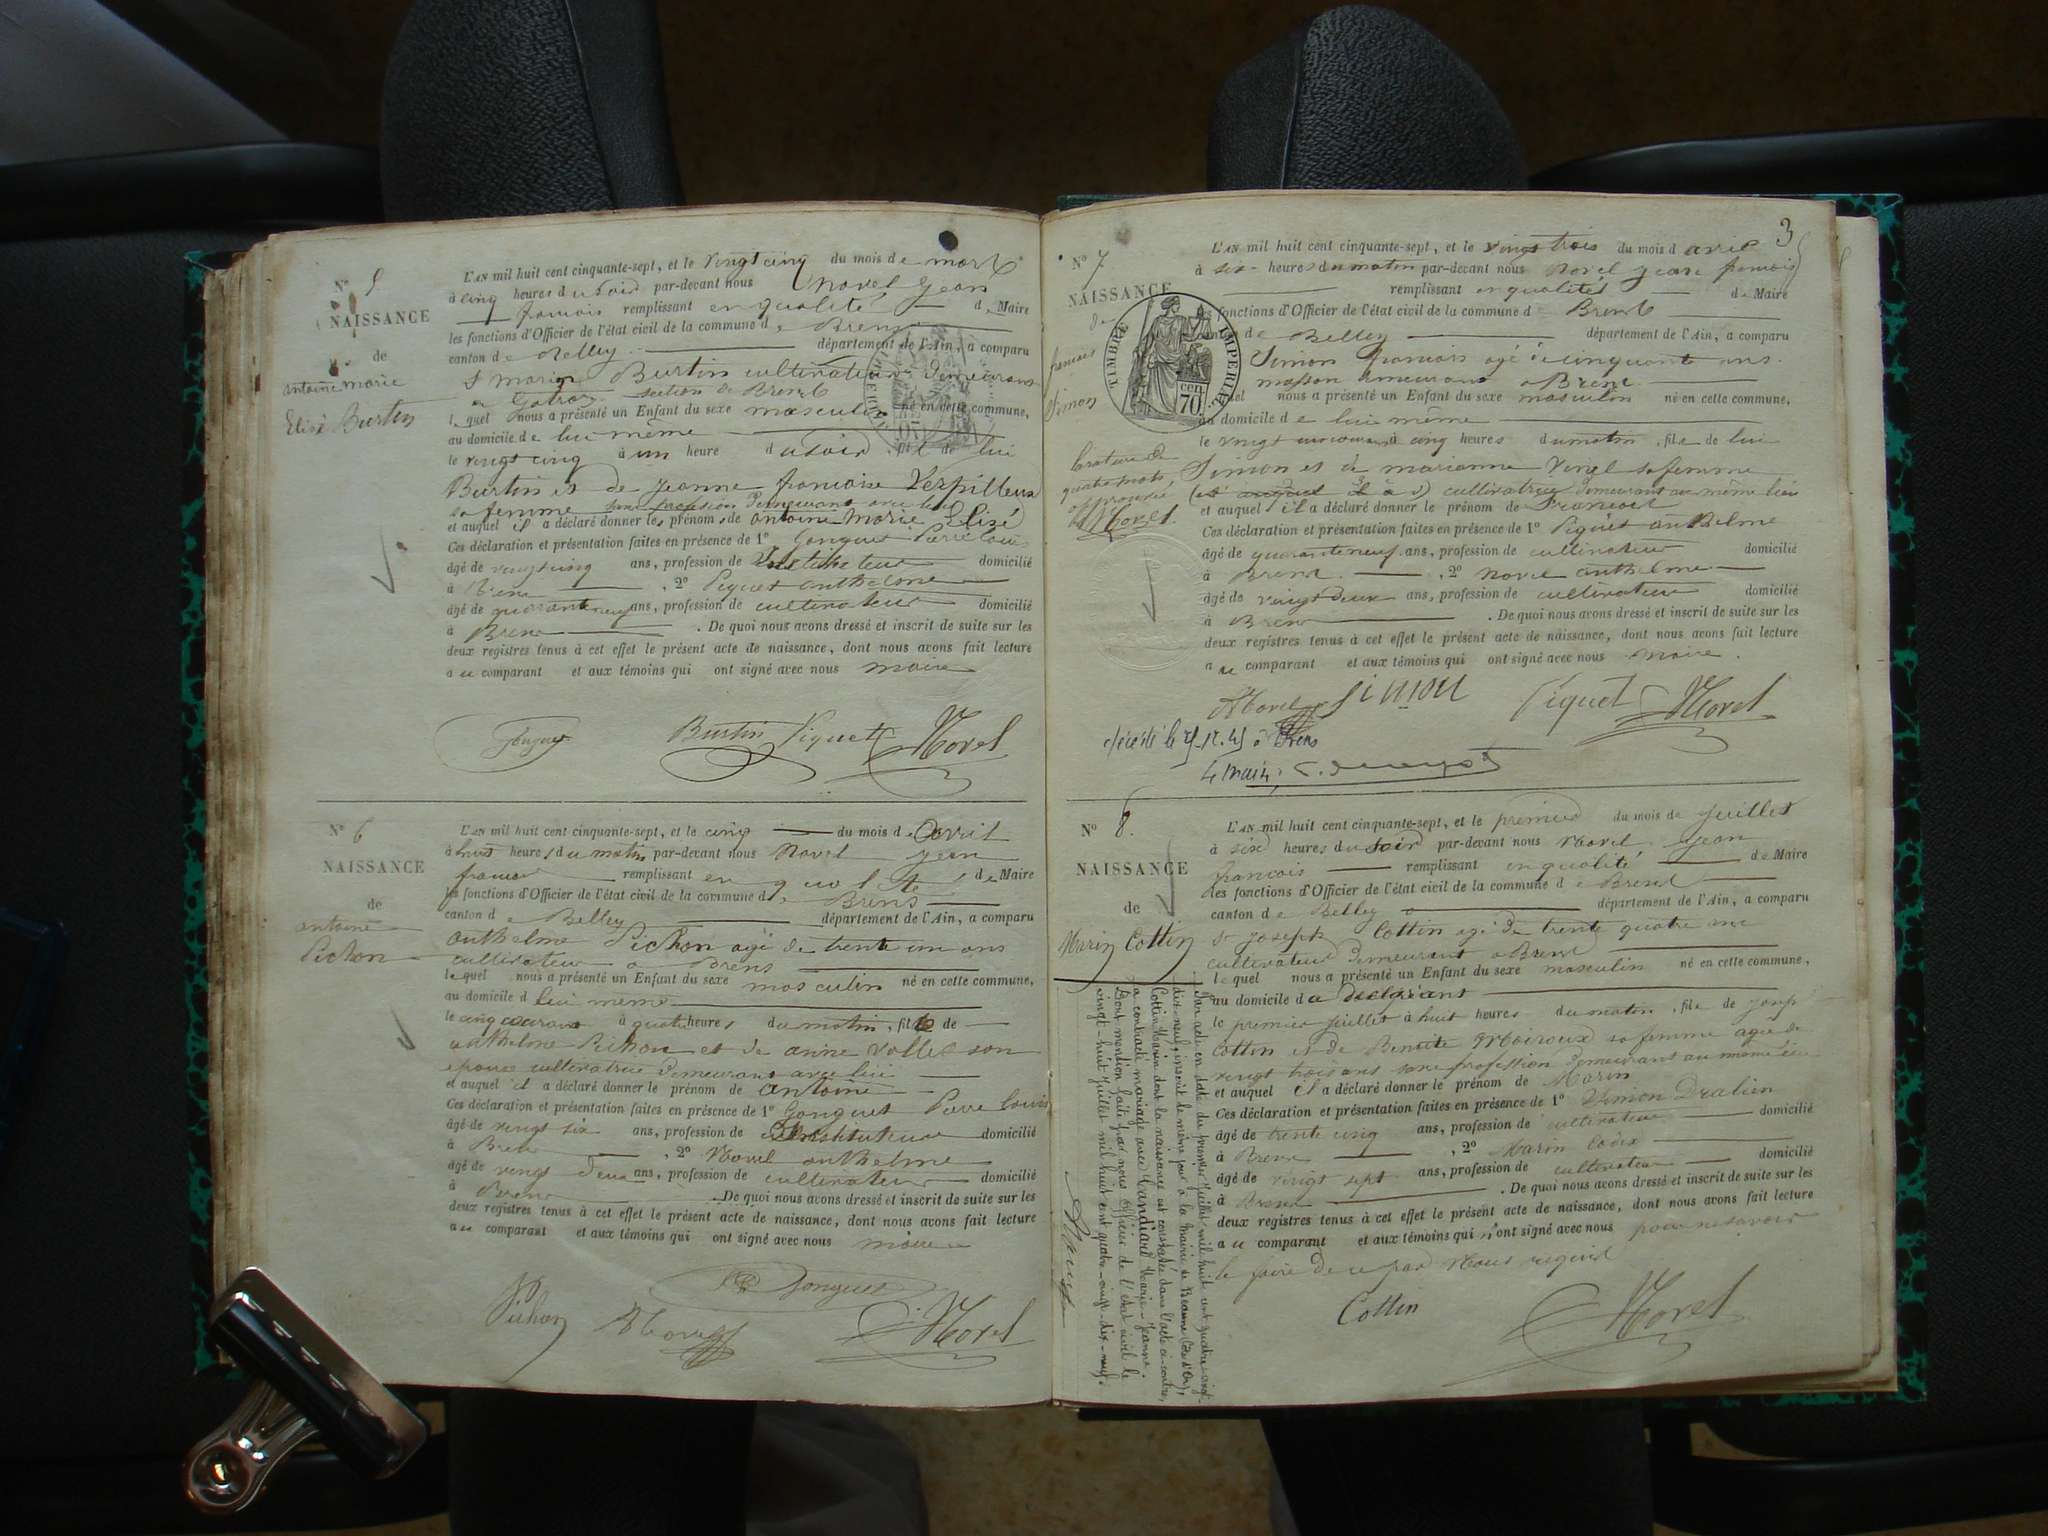 N° 5
NAISSANCE
de
antoine marie
Elisé Burtin
L'AN mil huit cent cinquante-sept, et le vingt cinq du mois de mars
à cinq heures du soir par-devant nous Morel Jean
françois remplissant en qualité de Maire
les fonctions d'Officier de l'état civil de la commune de Brens
canton de Belley département de l'Ain, a comparu
Burtin cultivateur demeurant
section de Brens
lequel nous a présenté un Enfant du sexe masculin né en cette commune,
au domicile de lui même
le vingt cinq à un heure du soir, fils de lui
Burtin et de Jeanne françoise Verpilleux
sa femme sans profession demeurant avec lui
et auquel il a déclaré donner les prénoms de antoine marie Elisé
Ces déclaration et présentation faites en présence de 1° Gonguet Pierre Louis
âgé de vingt cinq ans, profession de Instituteur domicilié
à Brens, 2° Piquet anthelme
âgé de quarante neuf ans, profession de cultivateur domicilié
à Brens. De quoi nous avons dressé et inscrit de suite sur les
deux registres tenus à cet effet le présent acte de naissance, dont nous avons fait lecture
au comparant et aux témoins qui ont signé avec nous maire
Gonguet Burtin Piquet Morel
N° 6
NAISSANCE
de
antoine
Pichon
L'AN mil huit cent cinquante-sept, et le cinq du mois de Avril
à huit heures du matin par-devant nous Morel Jean
françois remplissant en qualité de Maire
les fonctions d'Officier de l'état civil de la commune de Brens
canton de Belley département de l'Ain, a comparu
anthelme Pichon agé de trente un ans
cultivateur a Brens
lequel nous a présenté un Enfant du sexe masculin né en cette commune,
au domicile de lui meme
le cinq courant à quatre heures du matin, fils de
anthelme Pichon et de anne Vollet son
épouse cultivatrice demeurant avec lui
et auquel il a déclaré donner le prénom de antoine
Ces déclaration et présentation faites en présence de 1° Gonguet Pierre Louis
âgé de vingt six ans, profession de Instituteur domicilié
à Brens, 2° Morel anthelme
âgé de vingt deux ans, profession de cultivateur domicilié
à Brens. De quoi nous avons dressé et inscrit de suite sur les
deux registres tenus à cet effet le présent acte de naissance, dont nous avons fait lecture
au comparant et aux témoins qui ont signé avec nous maire
Pichon Morel Gonguet Morel
3
N° 7
NAISSANCE
de
françois
Simon
TIMBRE IMPERIAL
cen. 70
quatre mots
approuvée
Morel
L'AN mil huit cent cinquante-sept, et le vingt trois du mois d avril
à six heures du matin par-devant nous Morel Jean françois
remplissant en qualités de Maire
les fonctions d'Officier de l'état civil de la commune de Brens
canton de Belley département de l'Ain, a comparu
Simon francois agé de cinquante ans
masson demeurant a Brens
lequel nous a présenté un Enfant du sexe masculin né en cette commune,
au domicile de lui même
le vingt à cinq heures du matin, fils de lui
Simon et de marianne Vinel sa femme
cultivatrice demeurant au même lieu
et auquel il a déclaré donner le prénom de francois
Ces déclaration et présentation faites en présence de 1° Piquet anthelme
âgé de quarante neuf ans, profession de cultivateur domicilié
à Brens, 2° Morel anthelme
âgé de vingt deux ans, profession de cultivateur domicilié
à Brens. De quoi nous avons dressé et inscrit de suite sur les
deux registres tenus à cet effet le présent acte de naissance, dont nous avons fait lecture
au comparant et aux témoins qui ont signé avec nous maire.
Morel Simon Piquet Morel
décédé le à Brens
Le Maire,
N° 8.
NAISSANCE
de
Marin Cottin
L'AN mil huit cent cinquante-sept, et le premier du mois de Juillet
à six heures du soir par-devant nous Morel Jean
françois remplissant en qualité de Maire
les fonctions d'Officier de l'état civil de la commune de Brens
canton de Belley département de l'Ain, a comparu
Sr Joseph Cottin agé de trente quatre ans
cultivateur demeurant a Brens
lequel nous a présenté un Enfant du sexe masculin né en cette commune,
au domicile du déclarant
le premier Juillet à huit heures du matin, fils de Joseph
Cottin et de Benoite Moiroux sa femme agée de
vingt trois ans sans profession demeurant au même lieu
et auquel il a déclaré donner le prénom de Marin
Ces déclaration et présentation faites en présence de 1° Simon
âgé de trente cinq ans, profession de cultivateur domicilié
à Brens, 2° Marin
âgé de vingt sept ans, profession de cultivateur domicilié
à Brens. De quoi nous avons dressé et inscrit de suite sur les
deux registres tenus à cet effet le présent acte de naissance, dont nous avons fait lecture
au comparant et aux témoins qui n'ont signé avec nous pour ne savoir
le faire de ce par Nous requis
Cottin Morel
Par acte en date du premier Juillet mil huit cent quatre-vingt-
dix-neuf, inscrit le même jour à la mairie de Beaune (Côte d'Or),
Cottin Marin dont la naissance est constatée dans l'acte ci-contre,
a contracté mariage avec Candiard Marie-Jeanne.
Dont mention faite par nous Officier de l'état civil le
vingt-huit Juillet mil huit cent quatre-vingt-dix-neuf.